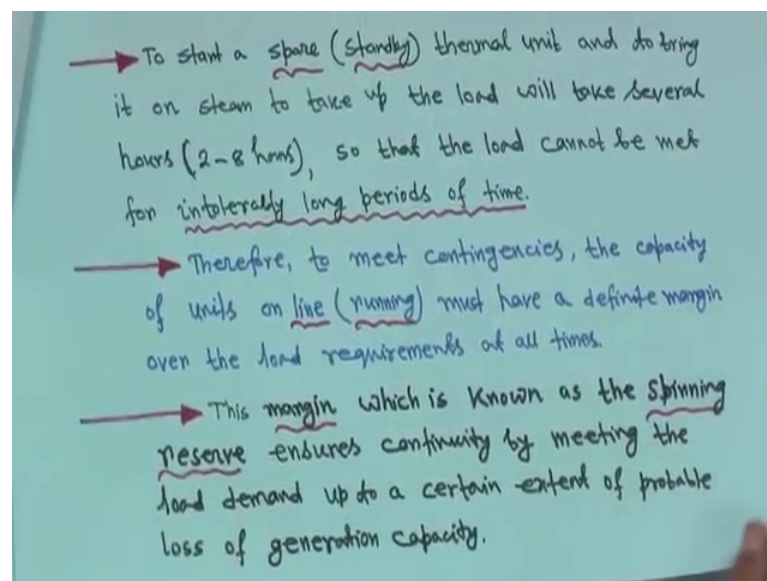 To start a spare (standby) thermal unit and to bring
it on steam to take up the load will take several
hours (2-8 hours), so that the load cannot be met
for intolerably long periods of time.
Therefore, to meet contingencies, the capacity
of units on line (running) must have a definite margin
over the load requirements at all times.
This margin which is known as the spinning
reserve ensures continuity by meeting the
load demand up to a certain extent of probable
loss of generation capacity.